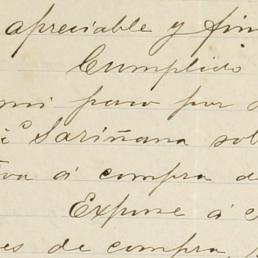 apreciable y fin
Cumplido
mi paso por
Sariñana so
va á compra d
Expuse á
es de compra,